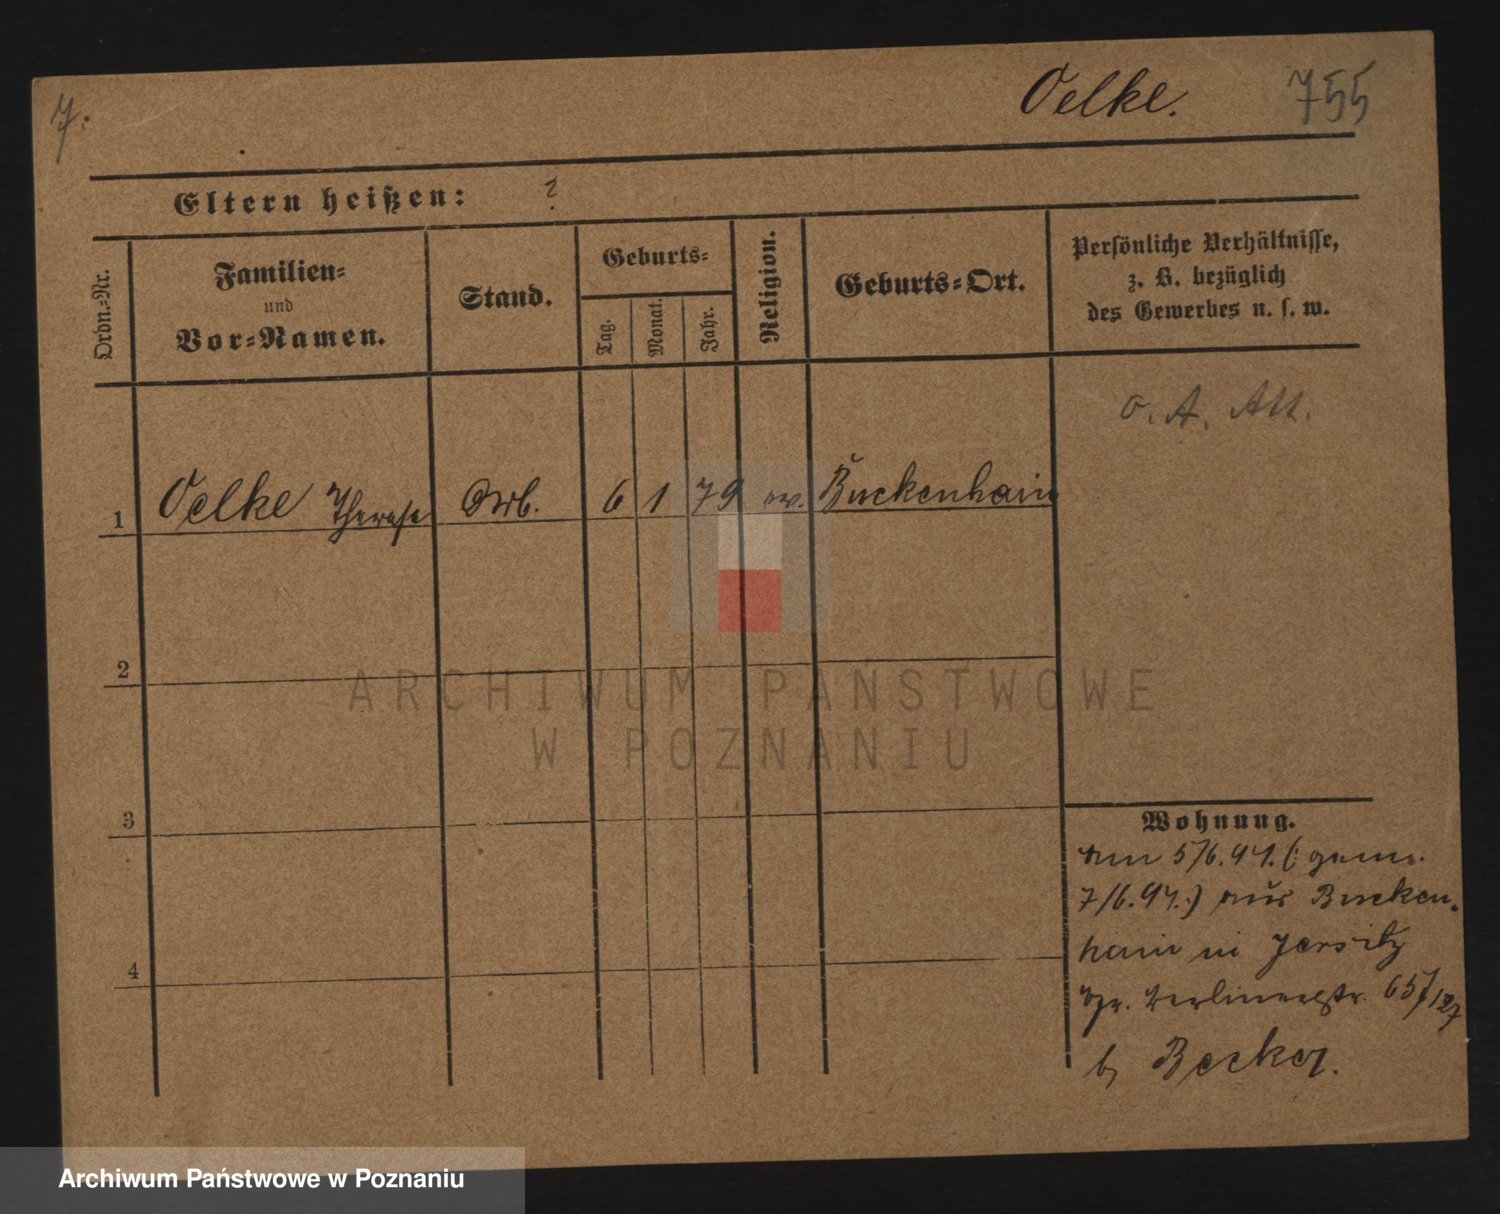 7.
Oelke.
755
Eltern heißen: ?
Ordn.-Nr.
Familien-
und
Vor-Namen.
Stand.
Geburts-
Tag.
Monat.
Jahr.
Religion.
Geburts-Ort.
Persönliche Verhältnisse,
z. B. bezüglich
des Gewerbes u. s. w.
o. A. Att.
1 Oelke Therese Arb. 6 1 79 ev. Buckenhain
2
3
4
Wohnung.
5/6.94. (: gem.
7/6.94.:) aus Bucken-
hain in Jersitz
Gr. Berlinerstr. 65/127
b, Becker.
ARCHIWUM PAŃSTWOWE
W POZNANIU
Archiwum Państwowe w Poznaniu